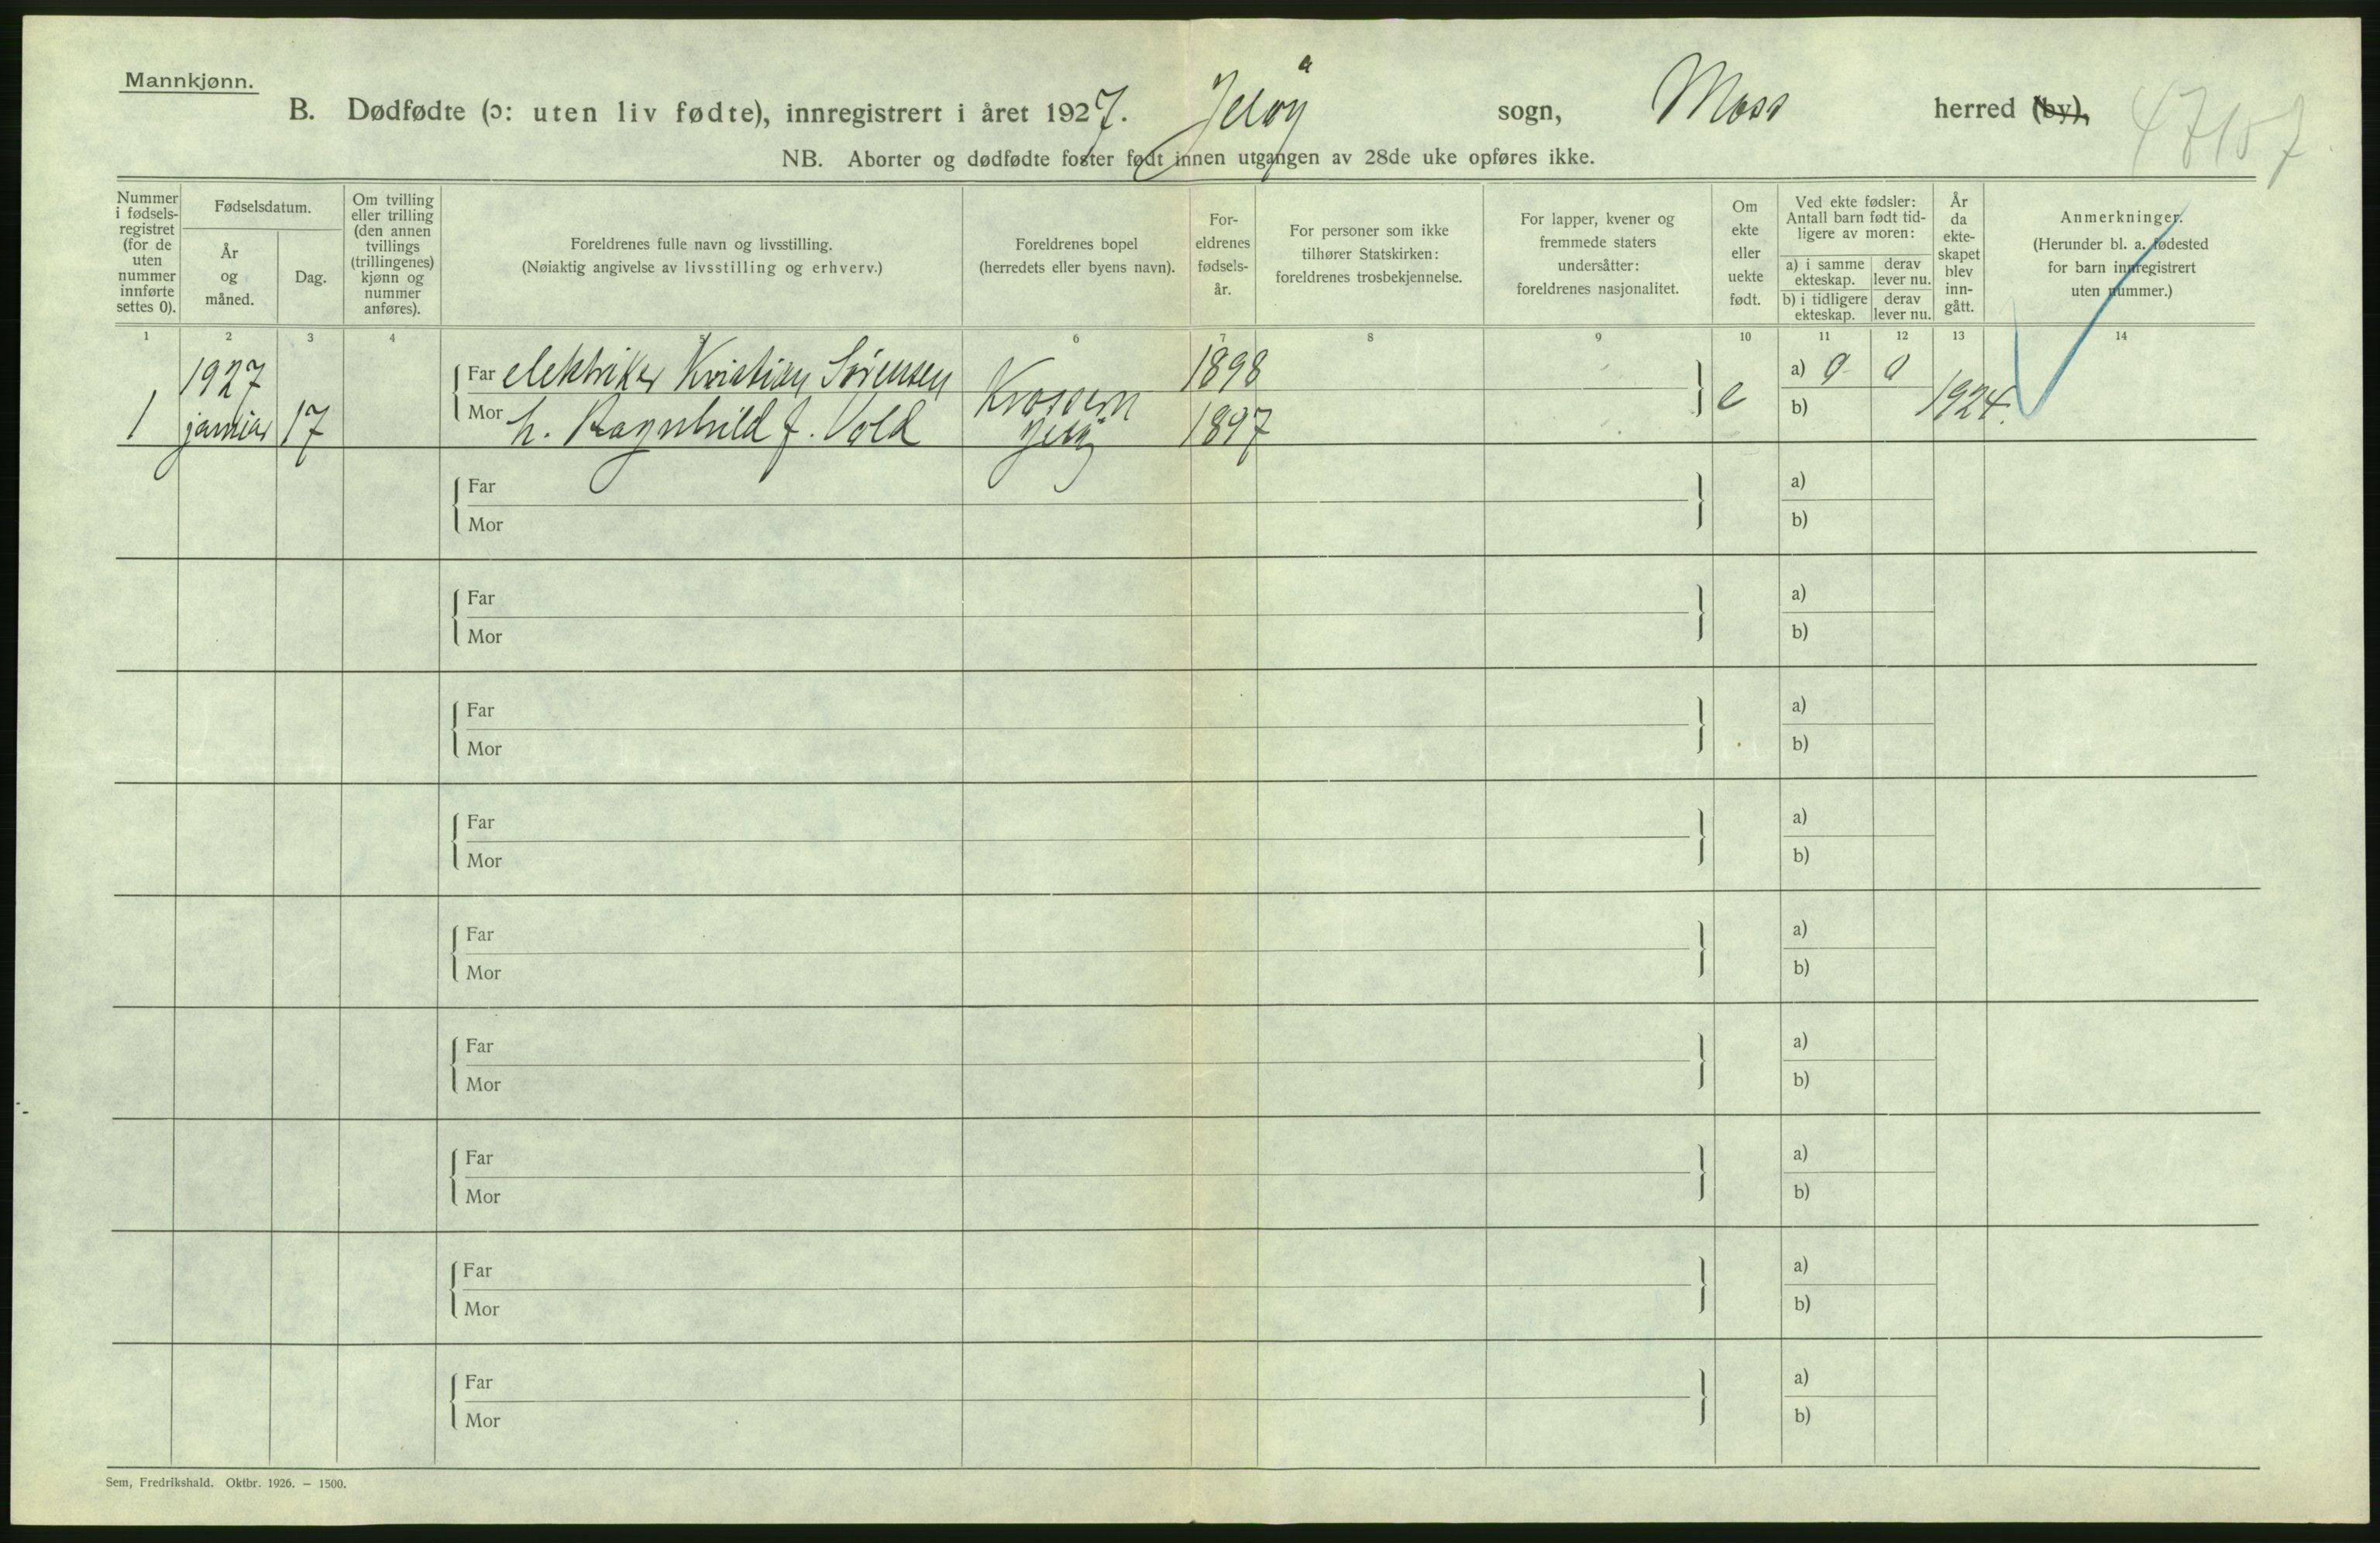 Mannkjønn.
B. Dødfødte (ɔ: uten liv fødte), innregistrert i året 1927. Jeløy sogn, Moss herred (by),
NB. Aborter og dødfødte foster født innen utgangen av 28de uke opføres ikke.
Nummer i fødsels-registret (for de uten nummer innførte settes 0).
Fødselsdatum.
År og måned.
Dag.
Om tvilling eller trilling (den annen tvillings (trillingenes) kjønn og nummer anføres).
Foreldrenes fulle navn og livsstilling.
(Nøiaktig angivelse av livsstilling og erhverv.)
Foreldrenes bopel
(herredets eller byens navn).
For-eldrenes fødsels-år.
For personer som ikke tilhører Statskirken: foreldrenes trosbekjennelse.
For lapper, kvener og fremmede staters undersåtter: foreldrenes nasjonalitet.
Om ekte eller uekte født.
Ved ekte fødsler: Antall barn født tid-ligere av moren:
a) i samme ekteskap.
derav lever nu.
b) i tidligere ekteskap.
derav lever nu.
År da ekte-skapet blev inn-gått.
Anmerkninger.
(Herunder bl. a. fødested for barn innregistrert uten nummer.)
1 2 3 4 5 6 7 8 9 10 11 12 13 14
1927 Far elektriker Kristian Sørensen 1898 a) 0 0
1 januar 17 Mor h. Ragnhild f. Vold Jeløy 1897 e b) 1924.
Far a)
Mor b)
Far a)
Mor b)
Far a)
Mor b)
Far a)
Mor b)
Far a)
Mor b)
Far a)
Mor b)
Far a)
Mor b)
Far a)
Mor b)
Far a)
Mor b)
Sem, Fredrikshald. Oktbr. 1926. — 1500.